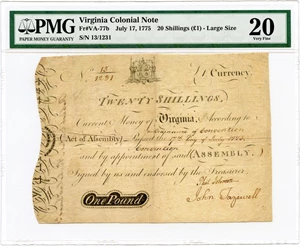 PMG
PAPER MONEY GUARANTY
Virginia Colonial Note
Fr#VA-77b July 17, 1775 20 Shillings (£1) - Large Size
S/N 13/1231
20
Very Fine
No. 13
1231
£1 Currency.
TWENTY SHILLINGS,
Current Money of Virginia, According to
Ordinance of Convention
(Act of Assembly) Passed the 17th Day of July 1775
Convention
and by appointment of said (ASSEMBLY.
Signed by us and endorsed by the Treasurer.
One Pound
Phil Johnson
John Tazewell